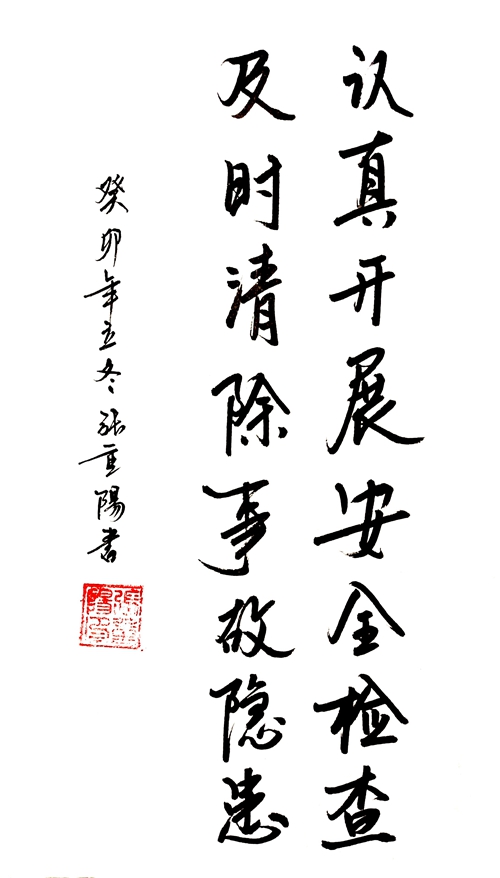 认真开展安全检查
及时清除事故隐患
癸卯年立冬张重陽书